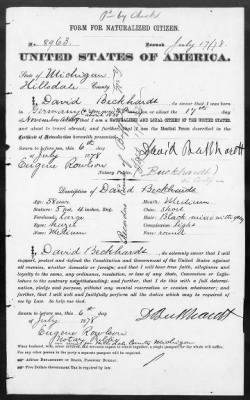 FORM FOR NATURALIZED CITIZEN.
No. 8963. Issued July 17/78.
UNITED STATES OF AMERICA.
State of Michigan
Hillsdale County
I, David Beckhardt, do swear that I was born
in Germany on or about the 17th day
of November, that I am a NATURALIZED AND LOYAL CITIZEN OF THE UNITED STATES,
and about to travel abroad; and further, that I am the Identical Person described in the
Certificate of Naturalization
Sworn to before me, this 6th day
of July 1878
Eugene Rowlson
Notary Public.
(Beckhardt)
Description of David Beckhardt
Age: 58 years Mouth: Medium
Stature: 5 feet, 4 inches, Eng. Chin: short
Forehead: Large Hair: Black mixed with gray
Eyes: hazel Complexion: light
Nose: Medium Face: round
I, David Beckhardt, do solemnly swear that I will
support, protect and defend the Constitution and Government of the United States against
all enemies, whether domestic or foreign; and that I will bear true faith, allegiance and
loyalty to the same, any ordinance, resolution, or law of any State, Convention or Legislature
to the contrary notwithstanding; and further, that I do this with a full determination,
pledge and purpose, without any mental reservation or evasion whatsoever; and
further, that I will well and faithfully perform all the duties which may be required of
me by Law. So help me God.
Sworn to before me, this 6th day
of July 1878
Eugene Rowlson
Notary Public